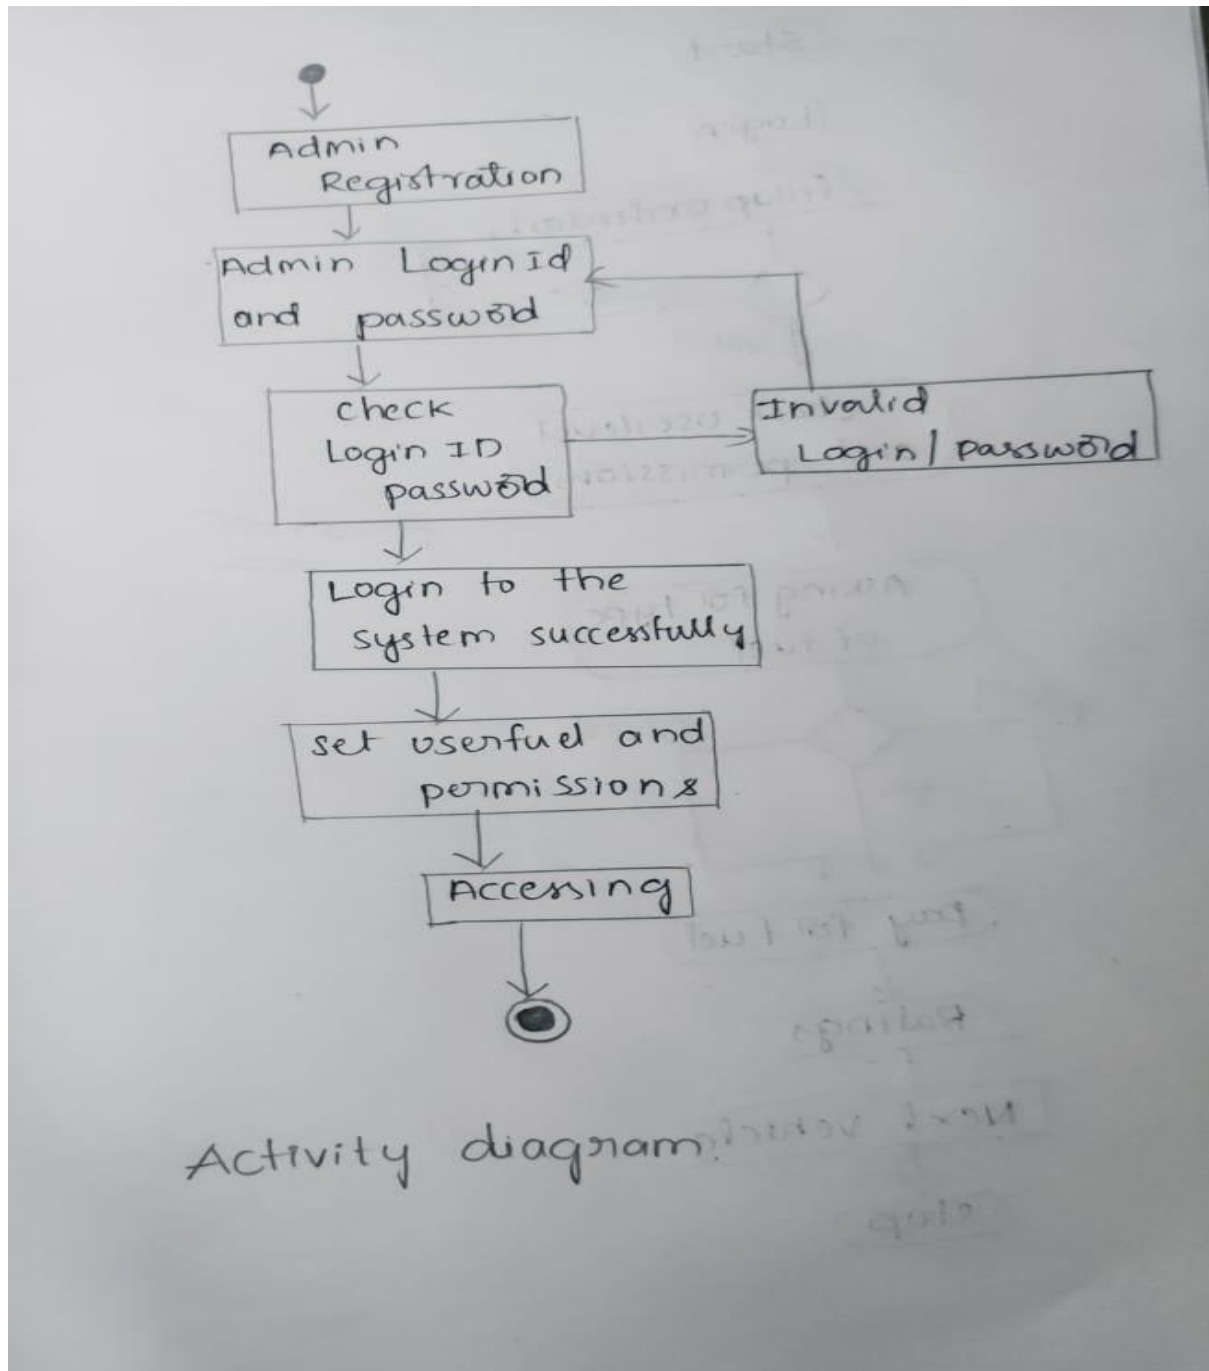 Admin
Registration
Admin Login Id
and password
check
Login ID
password
Invalid
Login/password
Login to the
system successfully
set userfuel and
permissions
Accessing
Activity diagram.